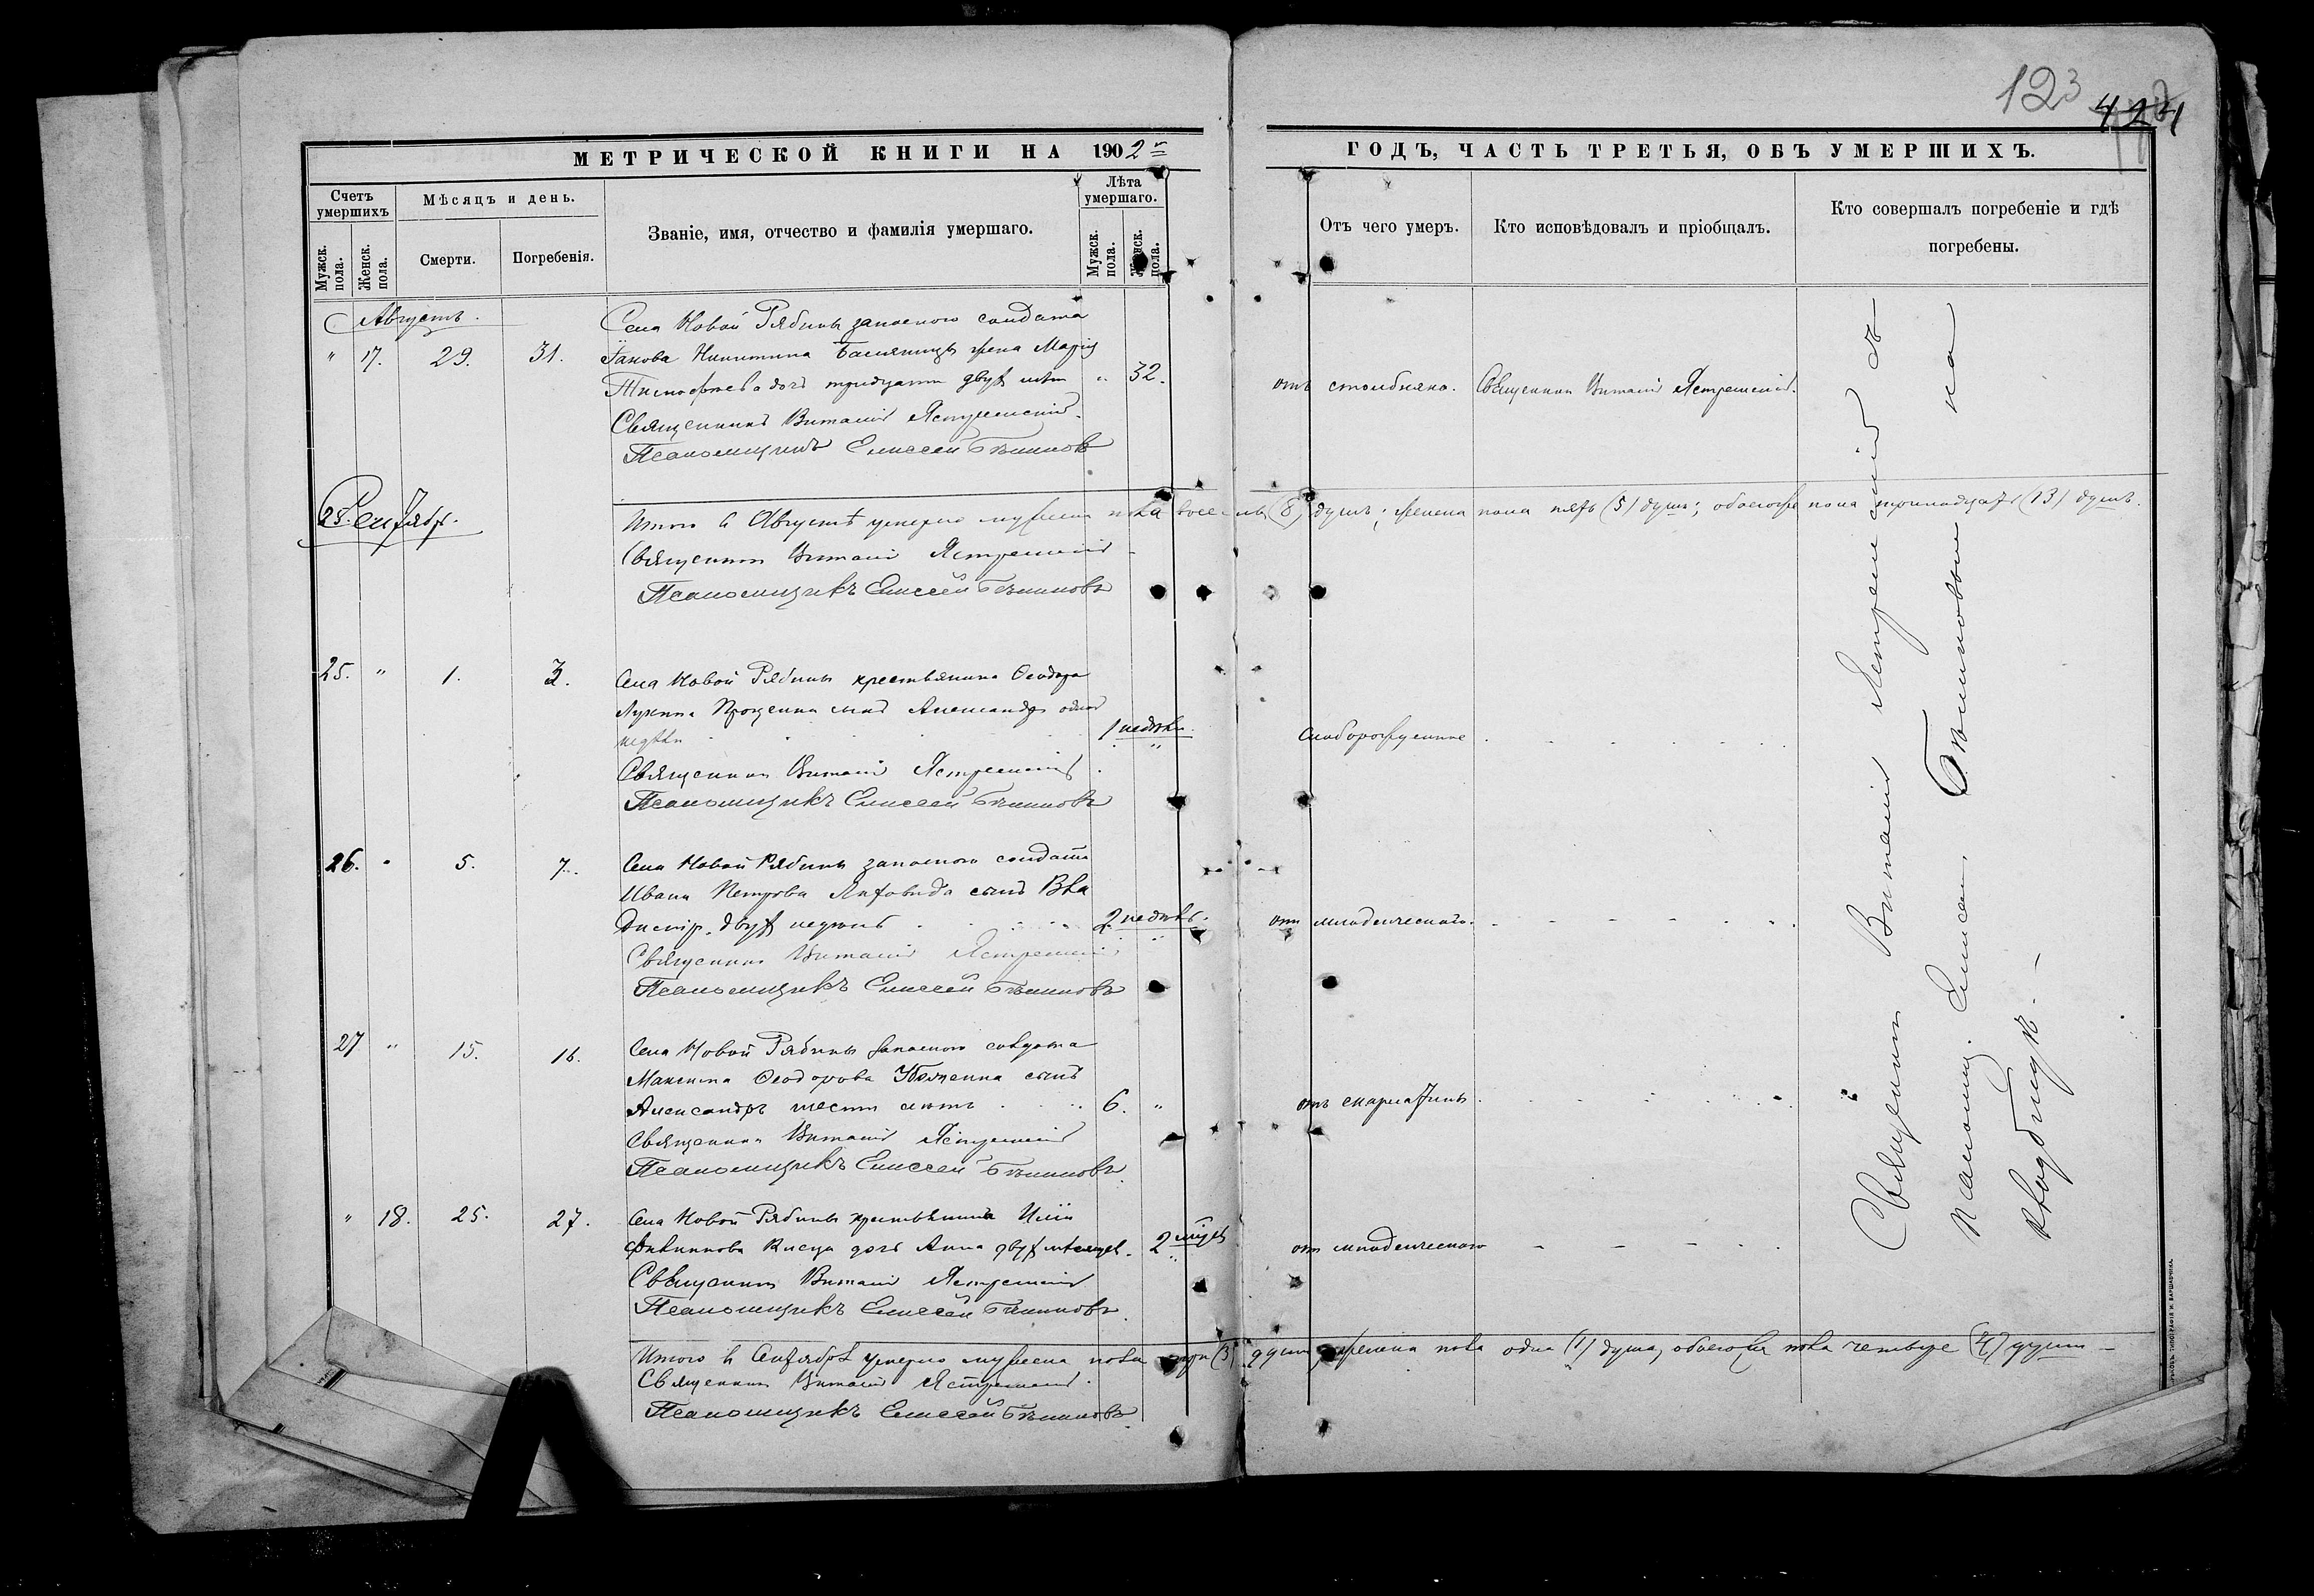 123
МЕТРИЧЕСКОЙ КНИГИ НА 1902 г.
ГОДЪ, ЧАСТЬ ТРЕТЬЯ, ОБЪ УМЕРШИХЪ.
Счетъ умершихъ
Мужск. пола.
Женск. пола.
Мѣсяцъ и день.
Смерти.
Погребенія.
Званіе, имя, отчество и фамилія умершаго.
Лѣта умершаго.
Мужск. пола.
Женск. пола.
Отъ чего умеръ.
Кто исповѣдовалъ и пріобщалъ.
Кто совершалъ погребеніе и гдѣ погребены.
Августъ.
" 17. 29. 31.
Села Новой Рябины запасного солдата
Іакова Никитина жена Марія
Тимофеева дочь тридцати двухъ лѣтъ " 32. отъ столбняка. Священникъ Виталій Ястремскій.
Священникъ Виталій Ястремскій.
Псаломщикъ Елисей
Сентябрь.
Итого въ Августѣ умерло мужеска пола восемь (8) душъ; женска пола пять (5) душъ; обоего же пола тринадцать (13) душъ.
Священникъ Виталій Ястремскій
Псаломщикъ Елисей
25. " 1. 3.
Села Новой Рябины крестьянина Ѳеодора
Лукина Проценка сынъ Александръ одной
недѣли 1 недѣли " слаборожденіе
Священникъ Виталій Ястремскій.
Псаломщикъ Елисей
26. " 5. 7.
Села Новой Рябины запасного солдата
Ивана Петрова сынъ Вла
диміръ двухъ недѣль 2 недѣль. отъ младенческаго.
Священникъ Виталій Ястремскій
Псаломщикъ Елисей
27 " 15. 16.
Села Новой Рябины запасного солдата
Максима Ѳеодорова сынъ
Александръ шести лѣтъ 6. " отъ скарлатины
Священникъ Виталій Ястремскій
Псаломщикъ Елисей
" 18. 25. 27.
Села Новой Рябины крестьянина Иліи
дочь Анна двухъ мѣсяцев. 2 отъ младенческаго
Священникъ Виталій Ястремскій
Псаломщикъ Елисей
Итого въ Сентябрѣ умерло мужеска пола три (3) души, женска пола одна (1) душа, обоего же пола четыре (4) души
Священникъ Виталій Ястремскій.
Псаломщикъ Елисей
Священникъ Виталій Ястремскій съ
Псаломщ. Елисеем на
кладбищѣ.